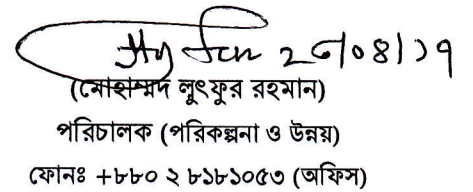 ২৫/০৪/১৭
(মোহাম্মদ লুৎফুর রহমান)
পরিচালক (পরিকল্পনা ও উন্নয়)
ফোনঃ +৮৮০ ২ ৮১৮১০৫৩ (অফিস)